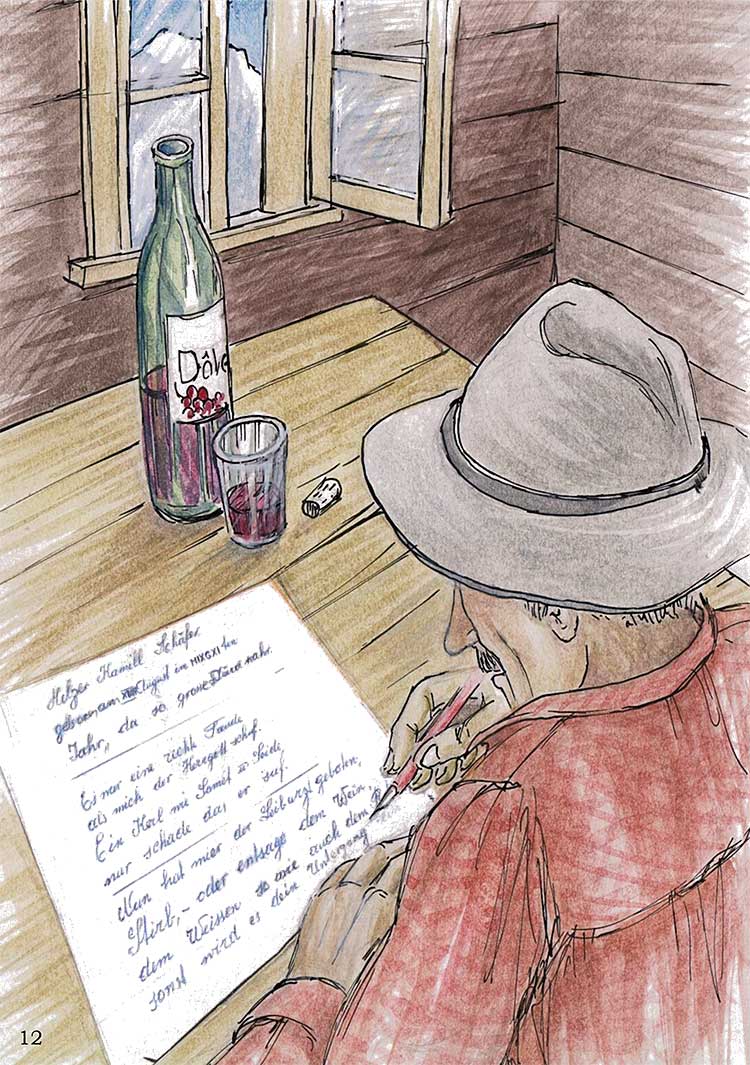 Dôle
Helzer Kamill Schäfer.
geboren am August im MIXGXI ten
Jahr, da so grosse Dürre wahr.
Es war eine rechte Freude
als mich der Herrgott schuf.
Ein Kerl wie Samet u. Seide
nur schade das er suf.
Nun hat mier der Leib arzt geboten,
Stirb, - oder entsage dem Wein,
dem Weissen so wie auch dem
sonst wird es dein Untergang
12